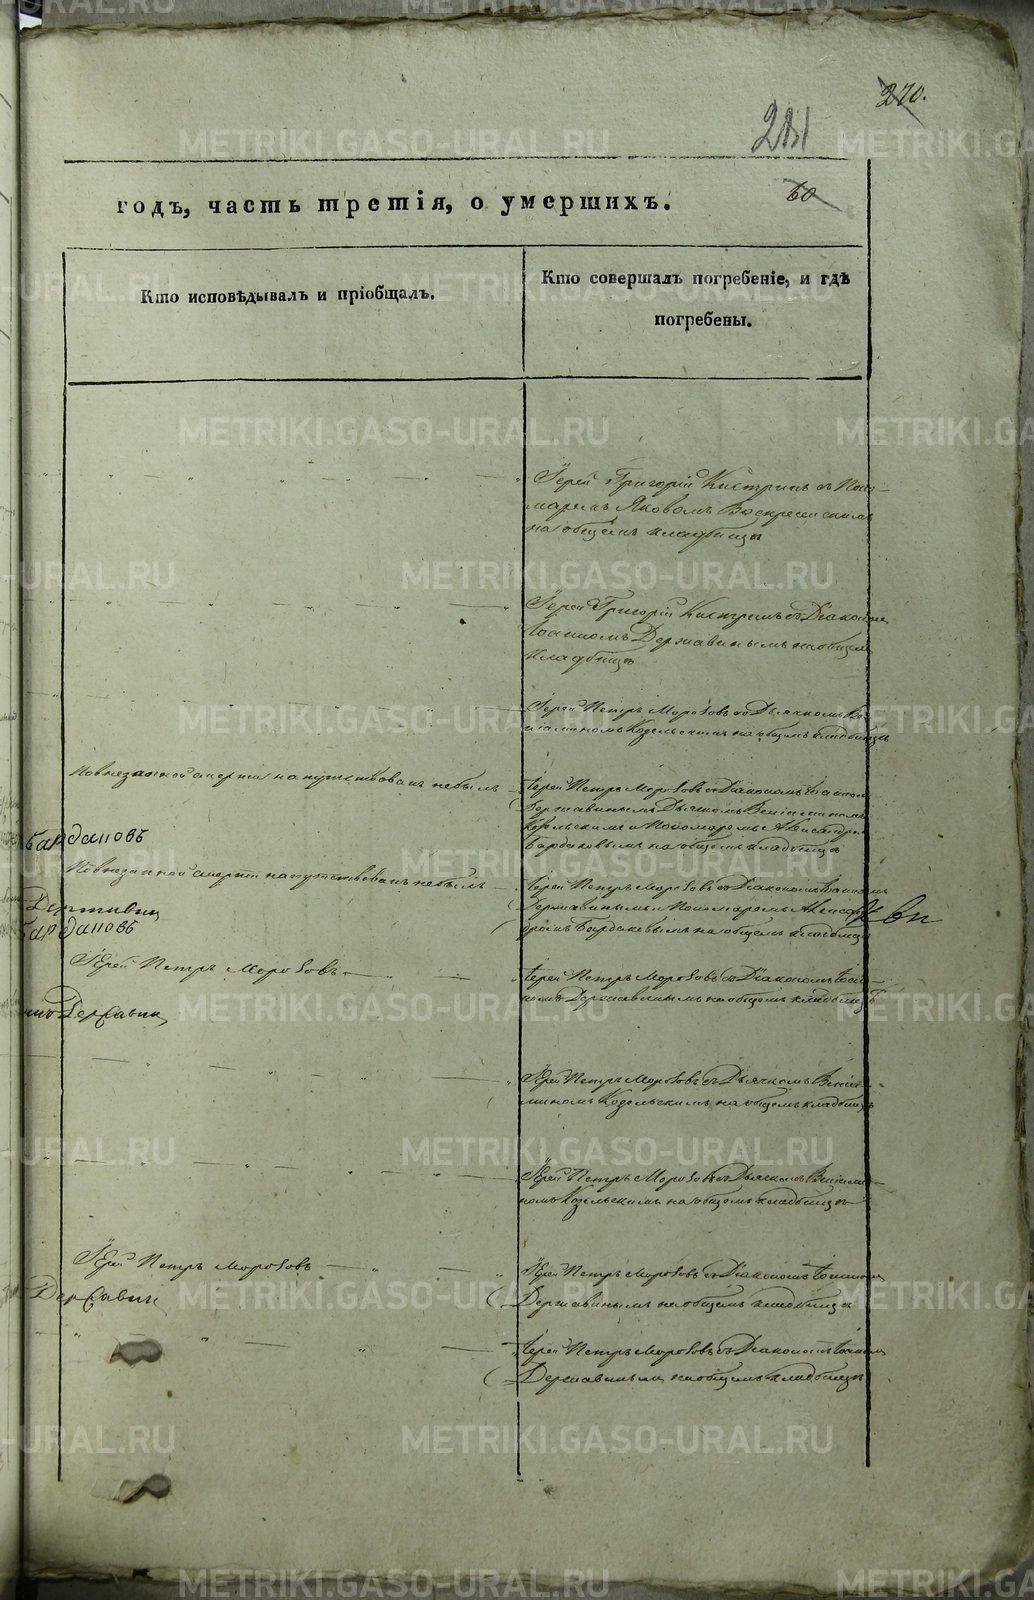 270.
211
60
годъ, часть третія, о умершихъ.
Кто исповѣдывалъ и пріобщалъ.
Кто совершалъ погребеніе, и гдѣ
погребены.
Іерей Григорій Кистринъ съ Поно-
маремъ Яковомъ Воскресенскимъ
на общемъ кладбищѣ
Іерей Григорій Кистринъ съ Діакономъ
Іоанномъ Державинымъ на общемъ
кладбищѣ
Іерей Петръ Морозовъ съ Дьячкомъ Ве-
ніаминомъ Козельскимъ на общемъ кладбищѣ
По внезапной смерти напутствованъ небылъ
Іерей Петръ Морозовъ съ Діакономъ Іоанном
Державинымъ Дьячкомъ Веніаминомъ
Козельскимъ и Пономаремъ Александром
Бардаковымъ на общемъ кладбищѣ
По внезапной смерти напутствованъ небылъ
Іерей Петръ Морозовъ съ Діакономъ Іоанномъ
Державинымъ и Пономаремъ Алексан-
дромъ Бардаковымъ на общемъ кладбищѣ
Іерей Петръ Морозовъ
Іерей Петръ Морозовъ съ Діакономъ Іоан-
номъ Державинымъ на общемъ кладбищѣ
Державин
Іерей Петръ Морозовъ съ Дьячкомъ Веніа-
миномъ Козельскимъ на общемъ кладбищѣ
Іерей Петръ Морозовъ съ Дьячкомъ Веніами-
номъ Козельскимъ на общемъ кладбищѣ
Іерей Петръ Морозовъ
Іерей Петръ Морозовъ съ Діакономъ Іоанном
Державинымъ на общемъ кладбищѣ
Державин
Іерей Петръ Морозовъ съ Діакономъ Іоанном
Державинымъ на общемъ кладбищѣ
METRIKI.GASO-URAL.RU